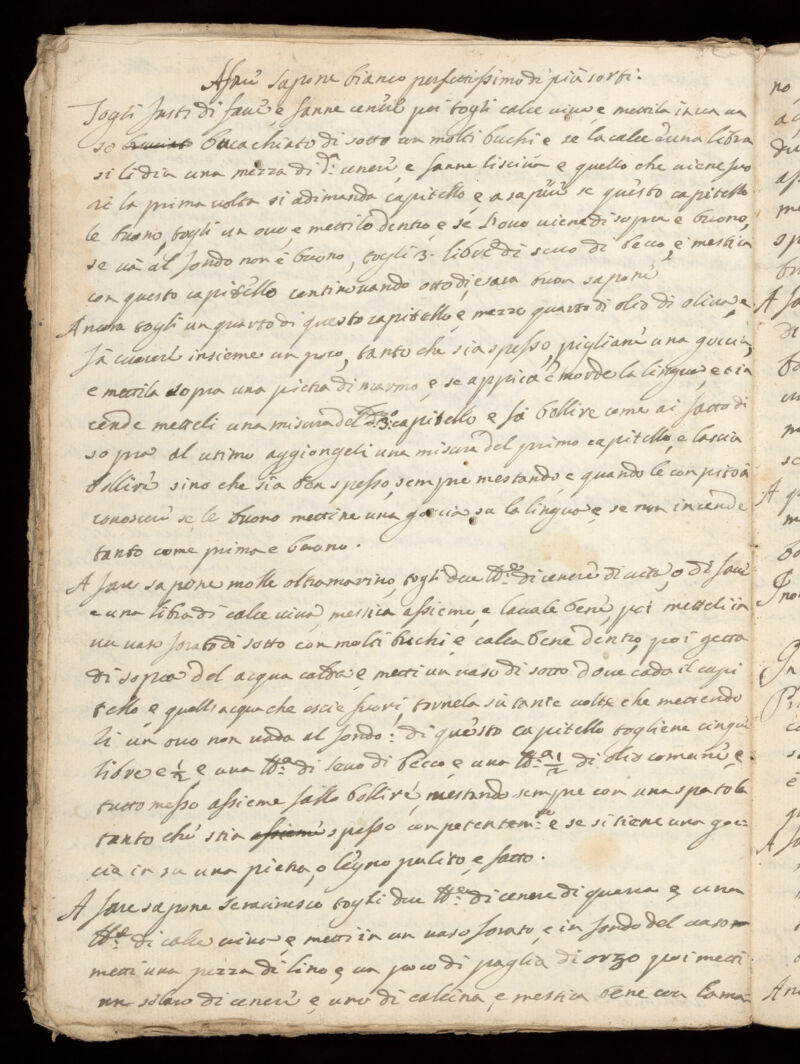 A far sapone bianco perfettissimo di più sorti.
Togli fusti di fave, e fanne cenere poi togli calce viva, e mettila in un va
so bucachiato di sotto un molti buchi e se la calce è una libra
si li dia una mezza di d.ª cenere, e fanne liscivia e quello che viene fuo
ri la prima volta si adimanda capitello, e a sapere se questo capitello
le buono, togli un ovo, e mettilo dentro, e se l'ovo viene di sopra è buono,
se và al fondo non è buono, togli 3. libre di sevo di becco, e mestica
con questo capitello continovando otto dì, e sara buon sapone
Ancora togli un quarto di questo capitello, e mezzo quarto di olio di oliva, e
fà cuocere insieme un poco, tanto che sia spesso, pigliane una goccia,
e mettila sopra una pietra di marmo, e se appica è morde la lingua, e t'in
cende metteli una misura del 3.º capitello e fà bollire come ai fatto di
sopra al ultimo aggiongeli una misura del primo capitello, e lascia
bollire sino che sia ben spesso, sempre mestando, e quando le compito à
conoscere se le buono mettine una goccia su la lingua, e se non incende
tanto come prima e buono.
A fare sapone molle oltramarino, togli due lb.e di cenere di cerro, o di fave
e una libra di calce viva, mestica assieme, e lavale bene, poi metteli in
un vaso forato di sotto con molti buchi, e calca bene dentro, poi getta
di sopra del acqua calda, e metti un vaso di sotto dove cada il capi
tello, e quell'acqua che escie fuori, tornela sù tante volte che mettendo
li un ovo non vada al fondo: di questo capitello togliene cinque
libre e ½ e una lb.ª di sevo di becco, e una lb.ª ½ di olio comune, e
tutto messo assieme fallo bollire, mestando sempre con una spatola
tanto che stia assieme spesso competentem.te e se si tiene una goc=
cia in su una pietra, o legno pulito, e fatto.
A fare sapone seracinesco togli due lb.e di cenere di quercia e una
lb.ª di calce viva, e metti in un vaso forato, e in fondo del vaso
metti una pezza di lino, e un poco di paglia di orzo poi metti
un solaro di cenere e uno di calcina, e mestica bene con la ma